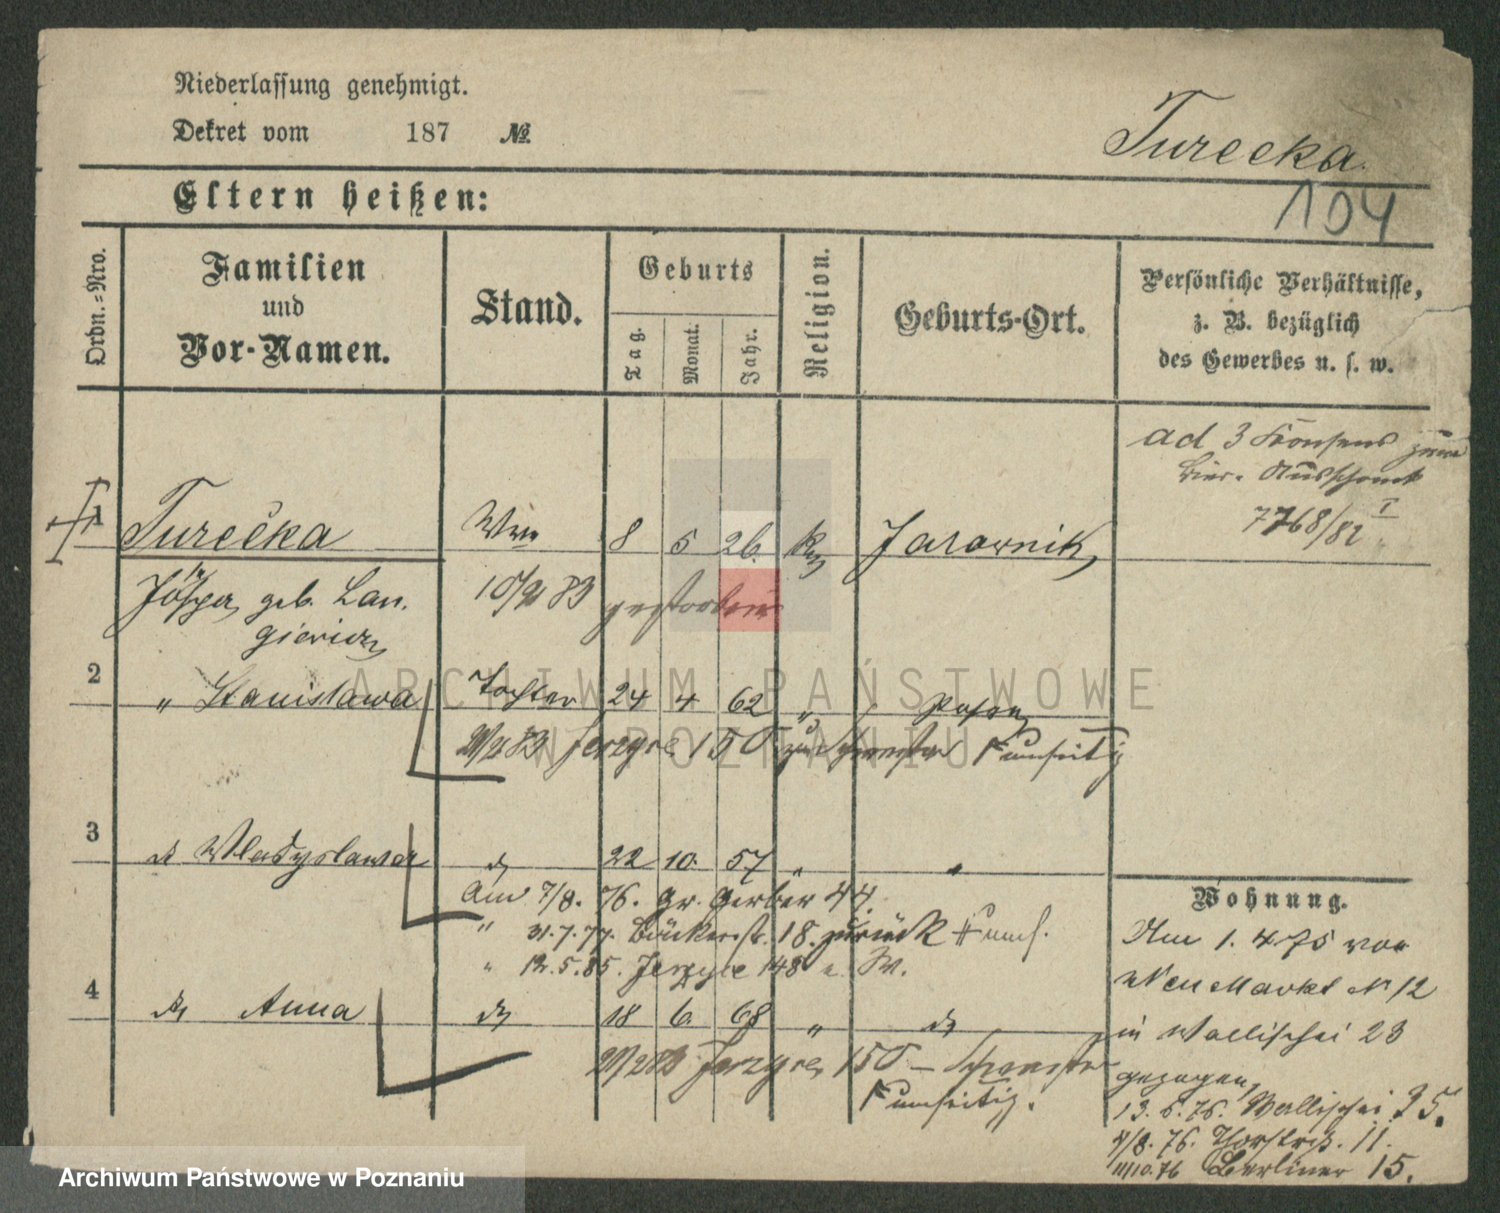 Niederlassung genehmigt.
Dekret vom 187 №
Turecka.
104
Eltern heißen:
Ordn.=Nro.
Familien
und
Vor-Namen.
Stand.
Geburts
Tag.
Monat.
Jahr.
Religion.
Geburts-Ort.
Persönliche Verhältnisse,
z. B. bezüglich
des Gewerbes u. s. w.
ad 3 Konsens zum
Bier-Ausschank
7768/82 I
1 Turečka Wwe 8 5 26. Jarocnik
geb. Lan,
giewicz
gestorben
2 " Stanislawa Tochter 24 4 62 " Posen
Jerzyce 150 zur Schwester umseitig
3 Wladyslawa 22 10. 57 " "
Am 7/8. 76. Gr. Gerber 44.
" 31.7.77. Bäckerstr. 18. zurück
" 12.5.85. Jerzyce 148 a. W.
4 Anna 18 6. 68 "
Jerzyce 150 - Schwester
umseitig.
Wohnung.
Am 1. 4. 75 von
Neu Markt No 12
in Wallischei 23
gezogen,
13. 6. 76. Wallischei 35.
7/8. 76. Thorstrß. 11.
10.76 Berliner 15.
ARCHIWUM PAŃSTWOWE
W POZNANIU
Archiwum Państwowe w Poznaniu